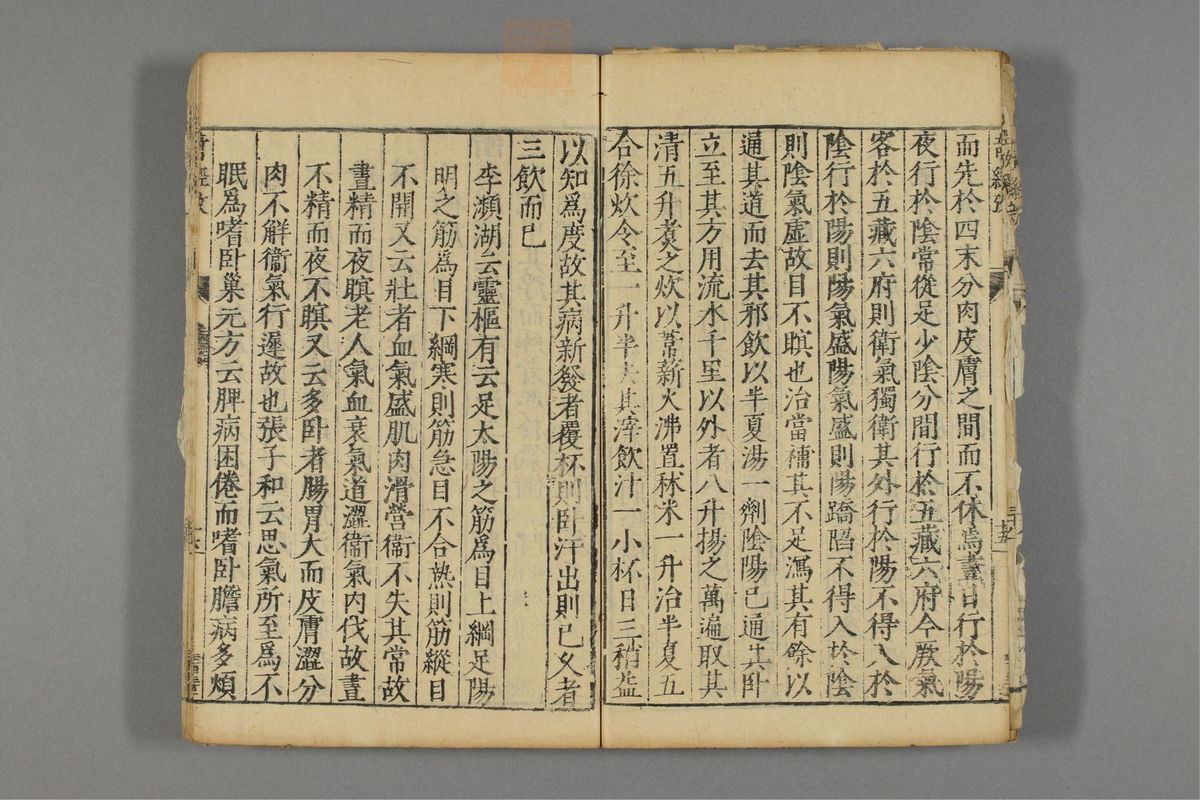 而先於四末分肉皮膚之間而不休焉晝日行於陽
夜行於陰常從足少陰分間行於五藏六府今厥氣
客於五藏六府則衛氣獨衛其外行於陽不得入於
陰行於陽則陽氣盛陽氣盛則陽蹻陷不得入於陰
則陰氣虛故目不瞑也治當補其不足瀉其有餘以
通其道而去其邪飲以半夏湯一劑陰陽已通其卧
立至其方用流水千里以外者八升揚之萬遍取其
清五升煮之炊以葦薪火沸置秫米一升治半夏五
合徐炊令至一升半去其滓飲汁一小杯日三稍益
以知爲度故其病新發者覆杯則卧汗出則已久者
三飲而已
李瀕湖云靈樞有云足太陽之筋爲目上綱足陽
明之筋爲目下綱寒則筋急目不合熱則筋縱目
不開又云壯者血氣盛肌肉滑營衞不失其常故
晝精而夜瞑老人氣血衰氣道澀衞氣內伐故晝
不精而夜不瞑又云多卧者腸胃大而皮膚澀分
肉不解衞氣行遲故也張子和云思氣所至爲不
眠爲嗜卧巢元方云脾病困倦而嗜卧膽病多煩